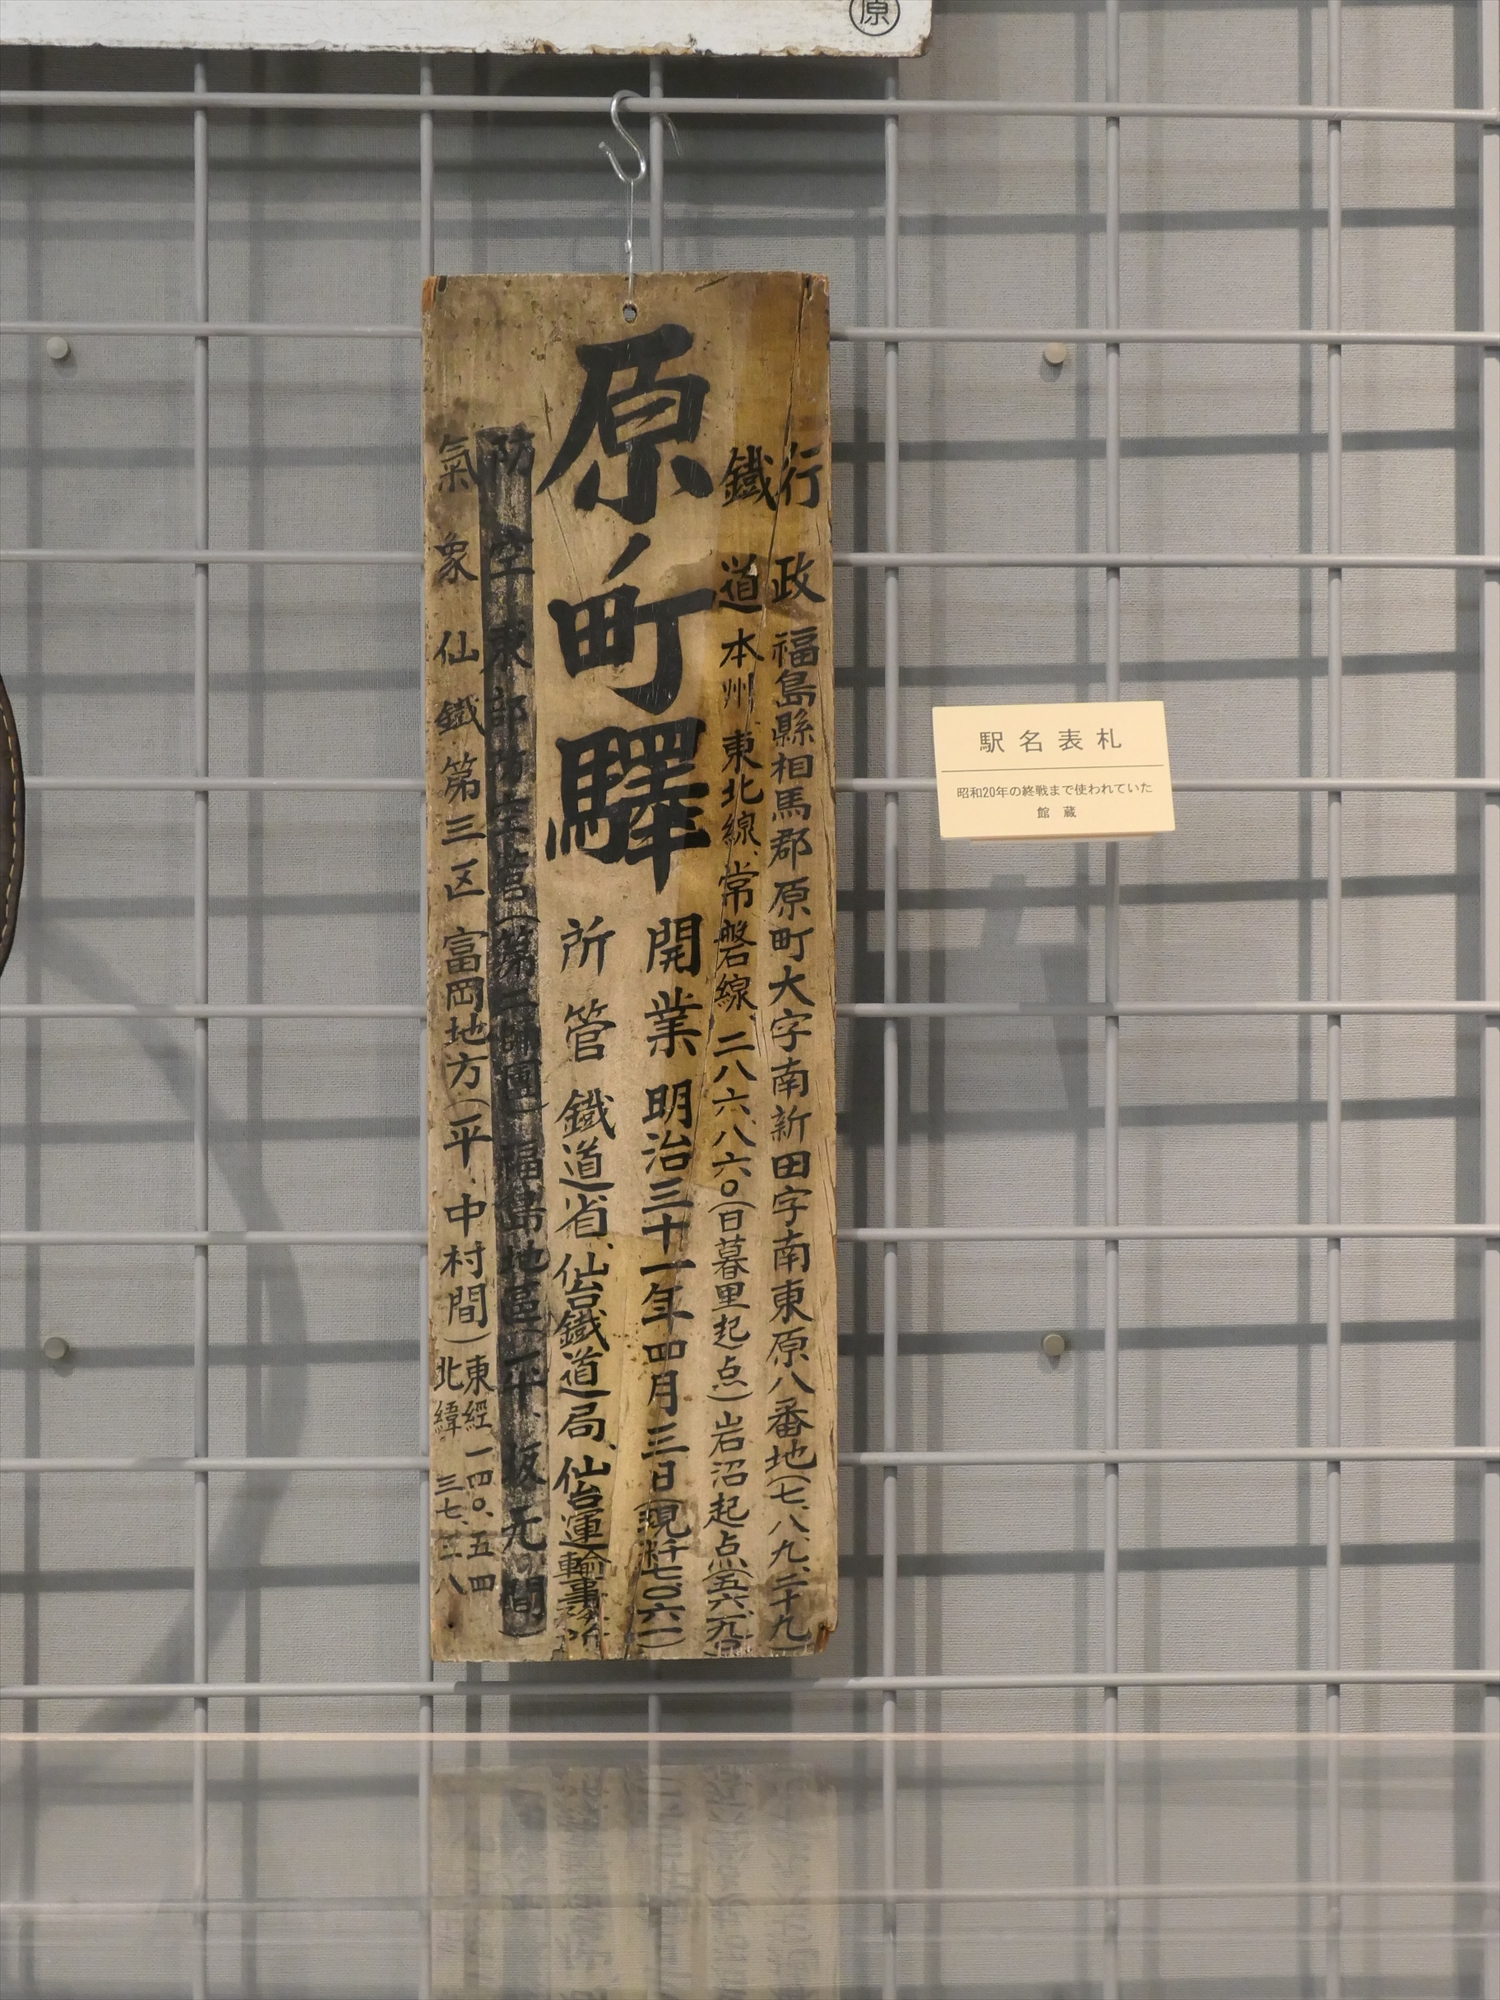 原
行政 福島縣相馬郡原町大字南新田字南東原八番地(七、八、九、二十九)
鐵道 本州 東北線、常磐線、二八六、八六〇(日暮里起点)岩沼起点
原ノ町驛
開業 明治三十一年四月三日(現粁七〇六一)
所管 鐵道省、仙台鐵道局、仙台運輸事務所
防空 東部防空管(第二師團)福島地區(平、坂元間)
氣象 仙鐵第三区 富岡地方(平、中村間)東經一四〇、五四
北緯 三七、三八
駅名表札
昭和20年の終戦まで使われていた
館蔵